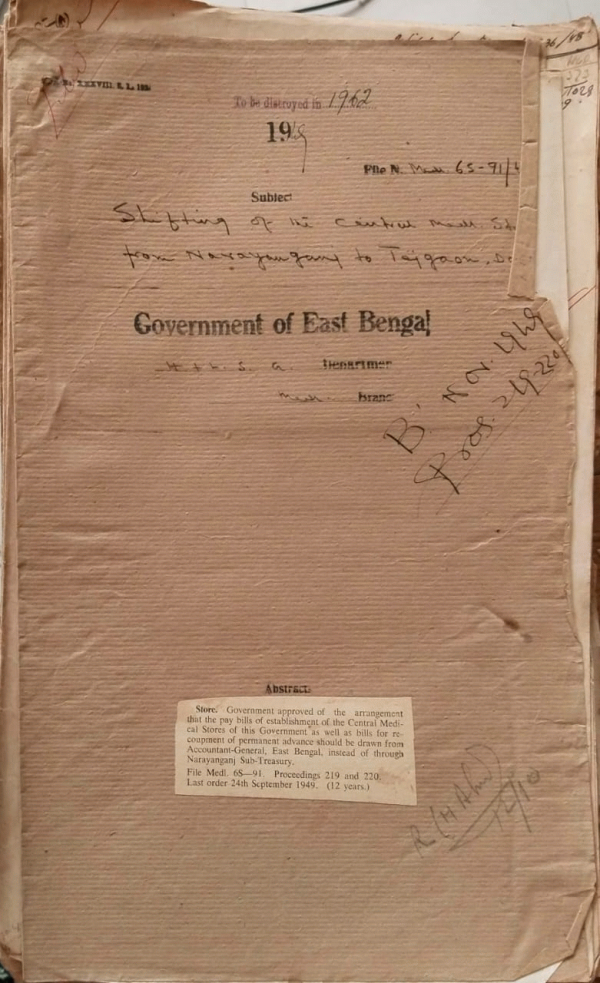 XXXVIII. S. L., 193
To be distroyed in 1962
1949
File N. Medl. 6S-91/4
Subject
Shifting of the Central Medl. St
from Narayanganj to Tejgaon, Da
Government of East Bengal
H & L. S. G. Departmen
Medl. Branc
B. Nov. 1949
Pros. 219-220
Abstract.
Store. Government approved of the arrangement
that the pay bills of establishment of the Central Medi-
cal Stores of this Government as well as bills for re-
coupment of permanent advance should be drawn from
Accountant-General, East Bengal, instead of through
Narayanganj Sub-Treasury.
File Medl. 6S—91. Proceedings 219 and 220.
Last order 24th September 1949. (12 years.)
12/10